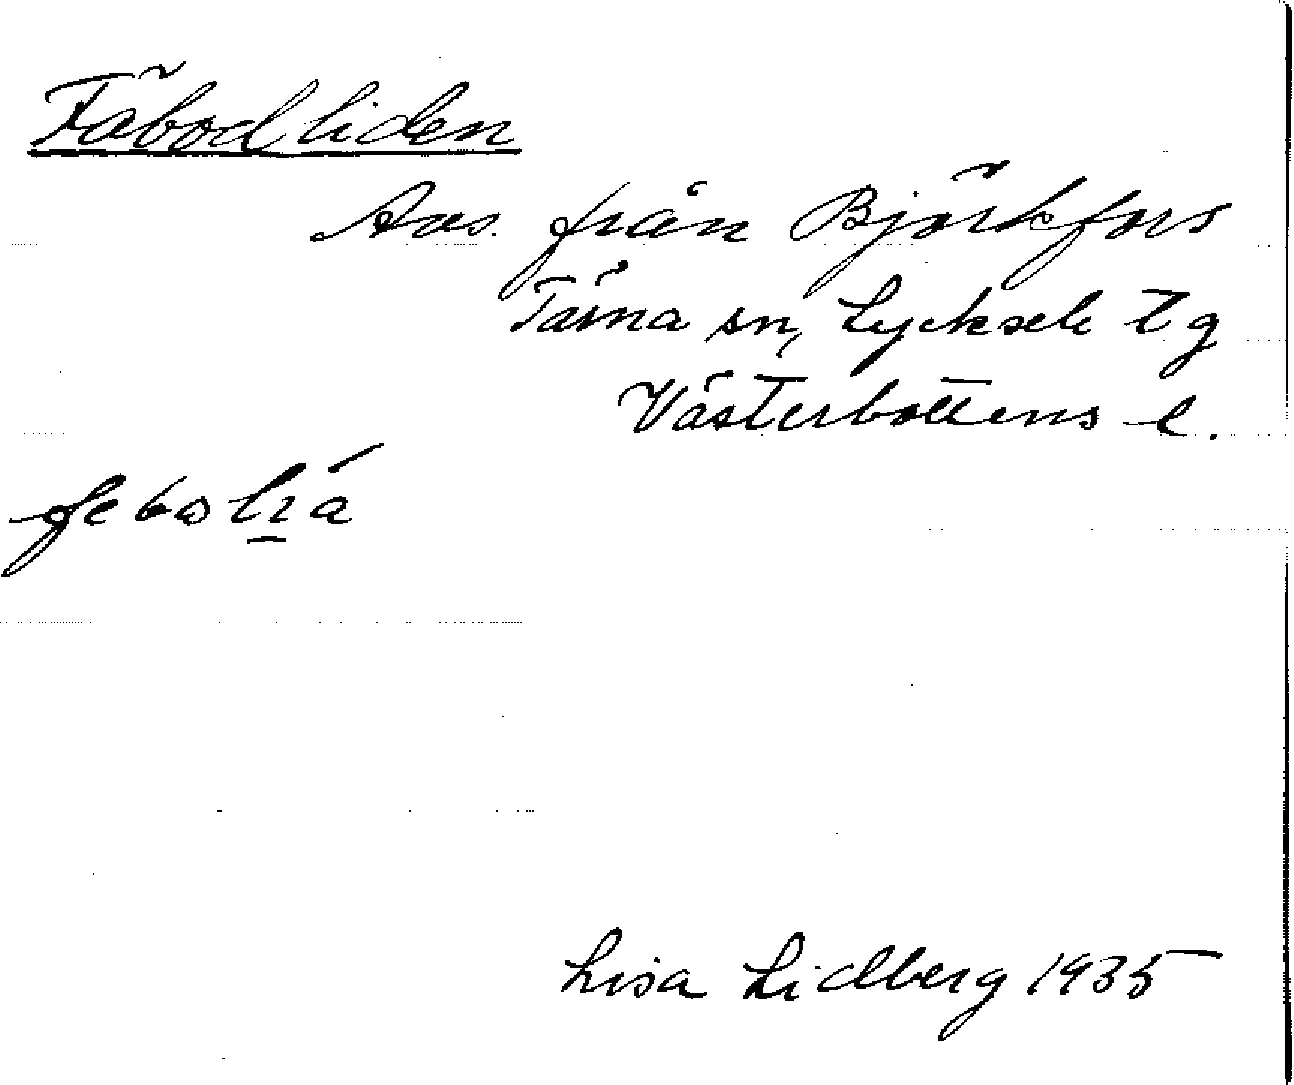 Fäbodliden
Avs. från Björkfors
Tärna sn, Lycksele tg
Västerbottens l.
Lisa Lidberg 1935